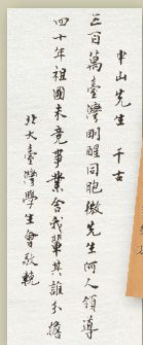 中山先生 千古
三百萬臺灣剛醒同胞微先生何人領導
四十年祖國未竟事業舍我輩其誰分擔
北大臺灣學生會敬輓